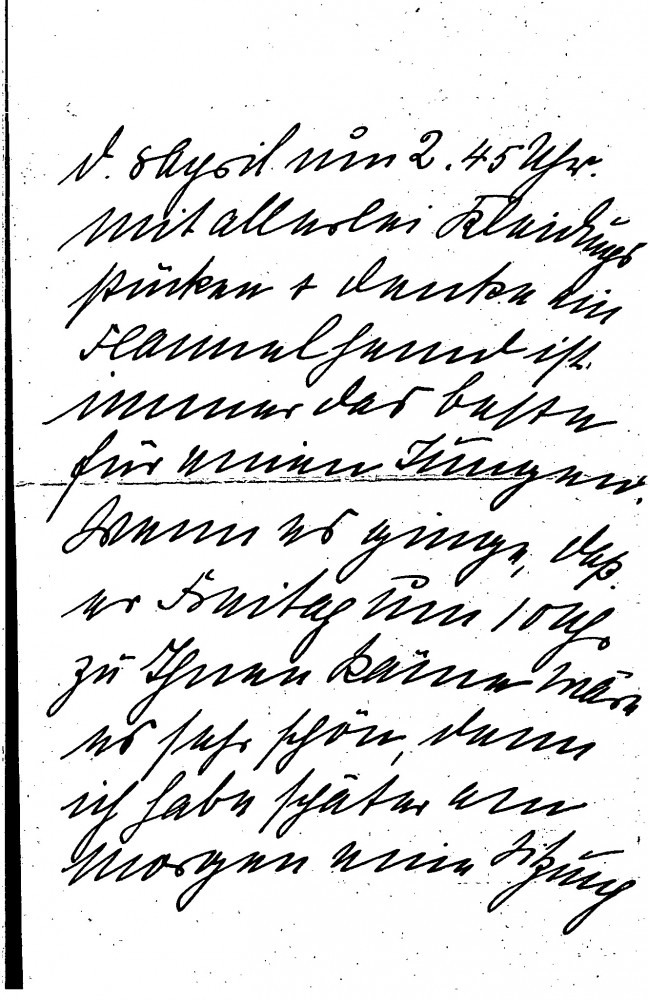 d. 8 April um 2.45 Uhr.
mit allerlei Kleidungs
stücken + denke ein
Flannelhemd ist
immer das beste
für einen Jungen.
Wenn es ginge, daß
er Freitag um 10 Uhr
zu Ihnen käme wäre
es sehr schön, denn
ich habe später am
Morgen eine Sitzung